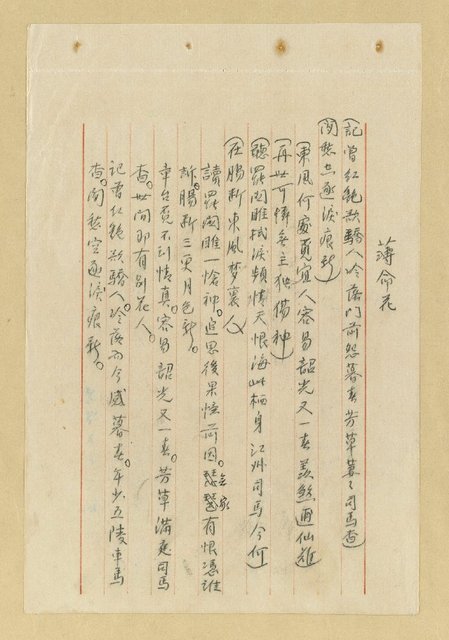 薄命花
(記曾紅艷欺驕人冷落門前怨暮春芳草萋々司馬杳)
(閒愁空逐淚痕新)
(東風何處覓宜人容易韶光又一春羨煞逦仙難
再世可憐無主独傷神)
(聽罷関雎拭淚頻情天恨海此栖身江州司馬今何
(在腸斷東風梦裏人)
讀罷関雎一愴神。追思後果憶前因。琵琶有恨憑誰
訴。腸斷三更月色新。
章台覓不到情真。容易韶光又一春。芳草滿庭司馬
杳。世間那有別花人。
記曾紅艷欺驕人。冷落而今感暮春。年少五陵車馬
杳。閒愁空逐淚痕新。